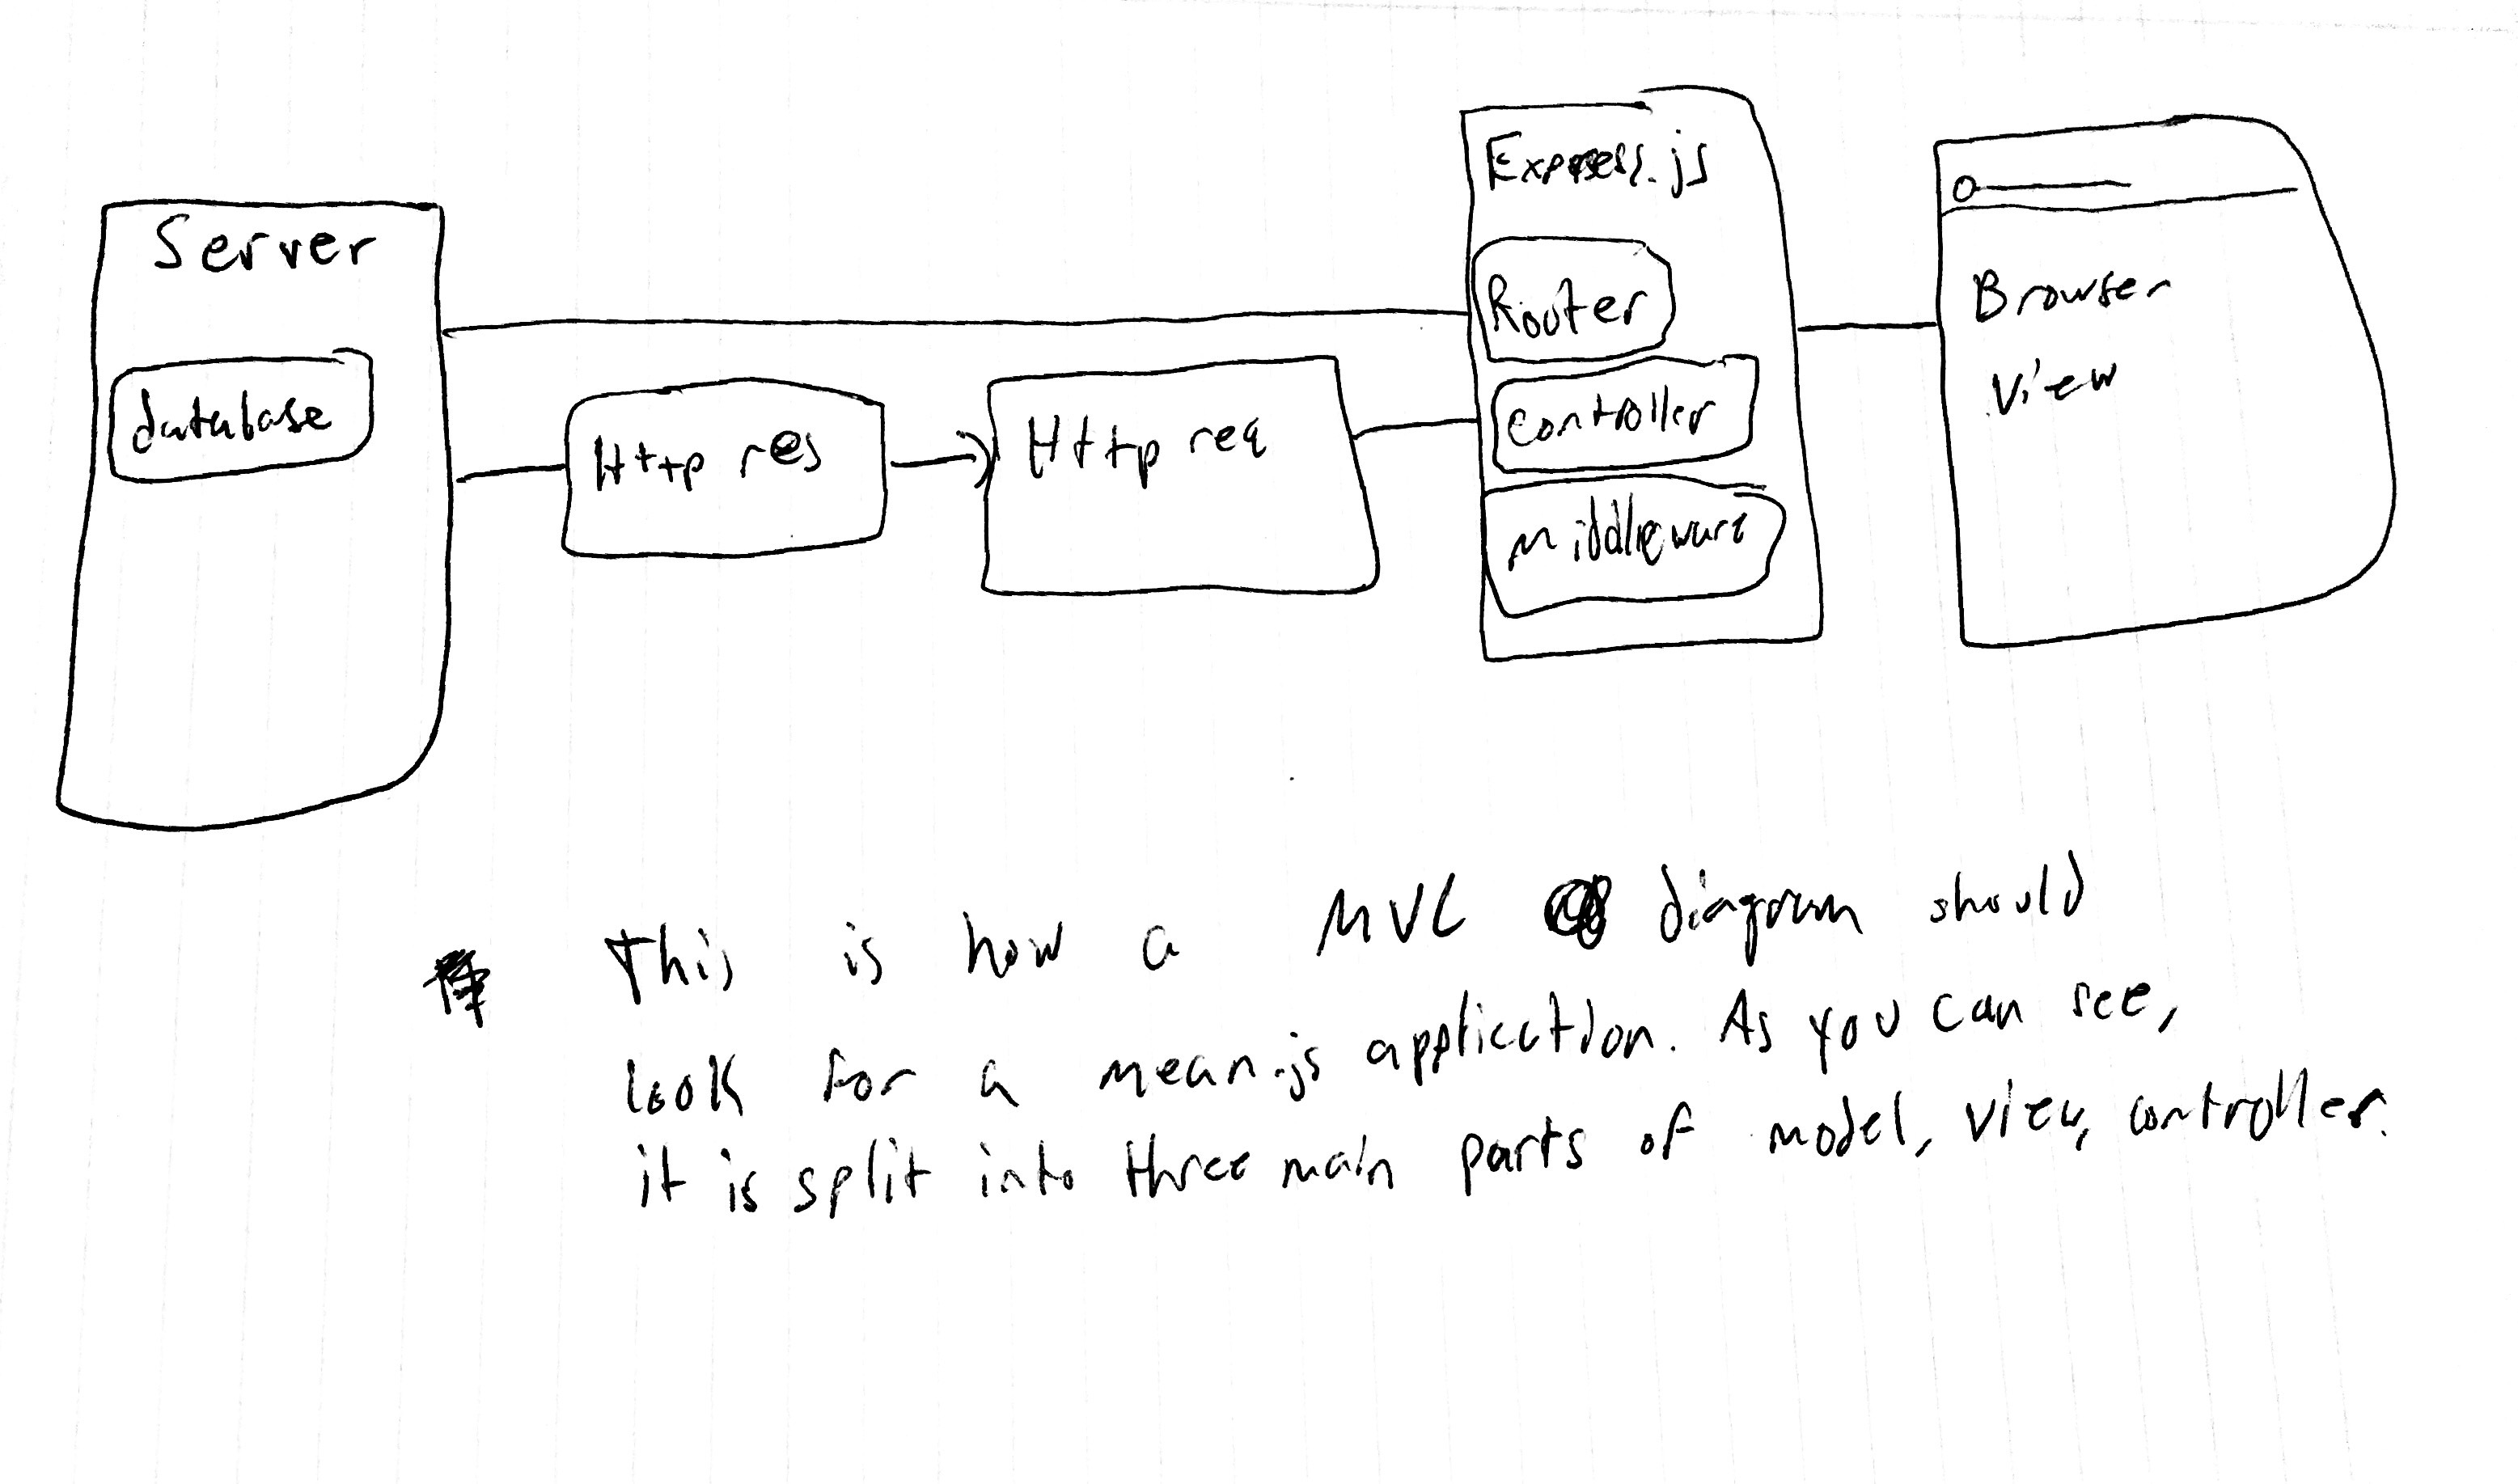 Server
database
Http res
Http req
Express.js
Router
Controller
Middleware
Browser
View
This is how a MVC diagram should
look for a mean.js application. As you can see,
it is split into three main parts of model, view, controller.